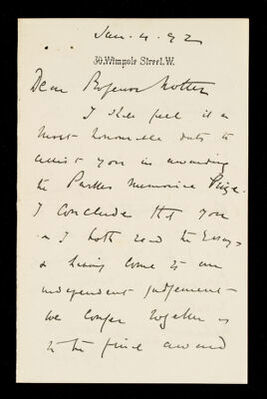 Jan. 4. 92
30, Wimpole Street. W.
Dear Professor Notter
I shall feel it a
most honourable duty to
assist you in awarding
the Parkes Memorial Prize.
I conclude tht you
& I both read the Essays
& having come to an
independent judgement
we confer together as
to the final award